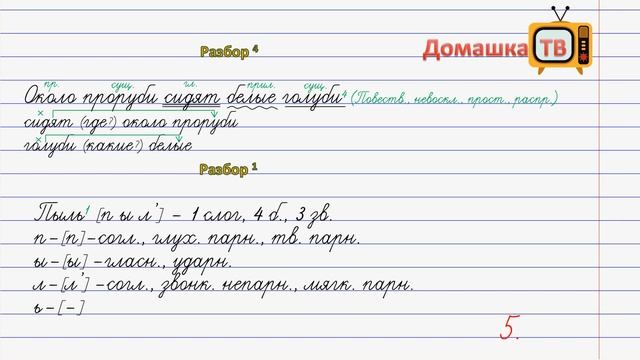 Разбор 4
Домашка ТВ
пр. сущ. гл. прил. сущ.
Около проруби сидят белые голуби4 (Повеств., невоскл., прост., распр.)
сидят (где?) около проруби
голуби (какие?) белые
Разбор 1
Пыль1 [п ы л'] - 1 слог, 4 б., 3 зв.
п-[п]-согл., глух. парн., тв. парн.
ы-[ы]-гласн., ударн.
л-[л']-согл., звонк. непарн., мягк. парн.
ь-[-]
5.